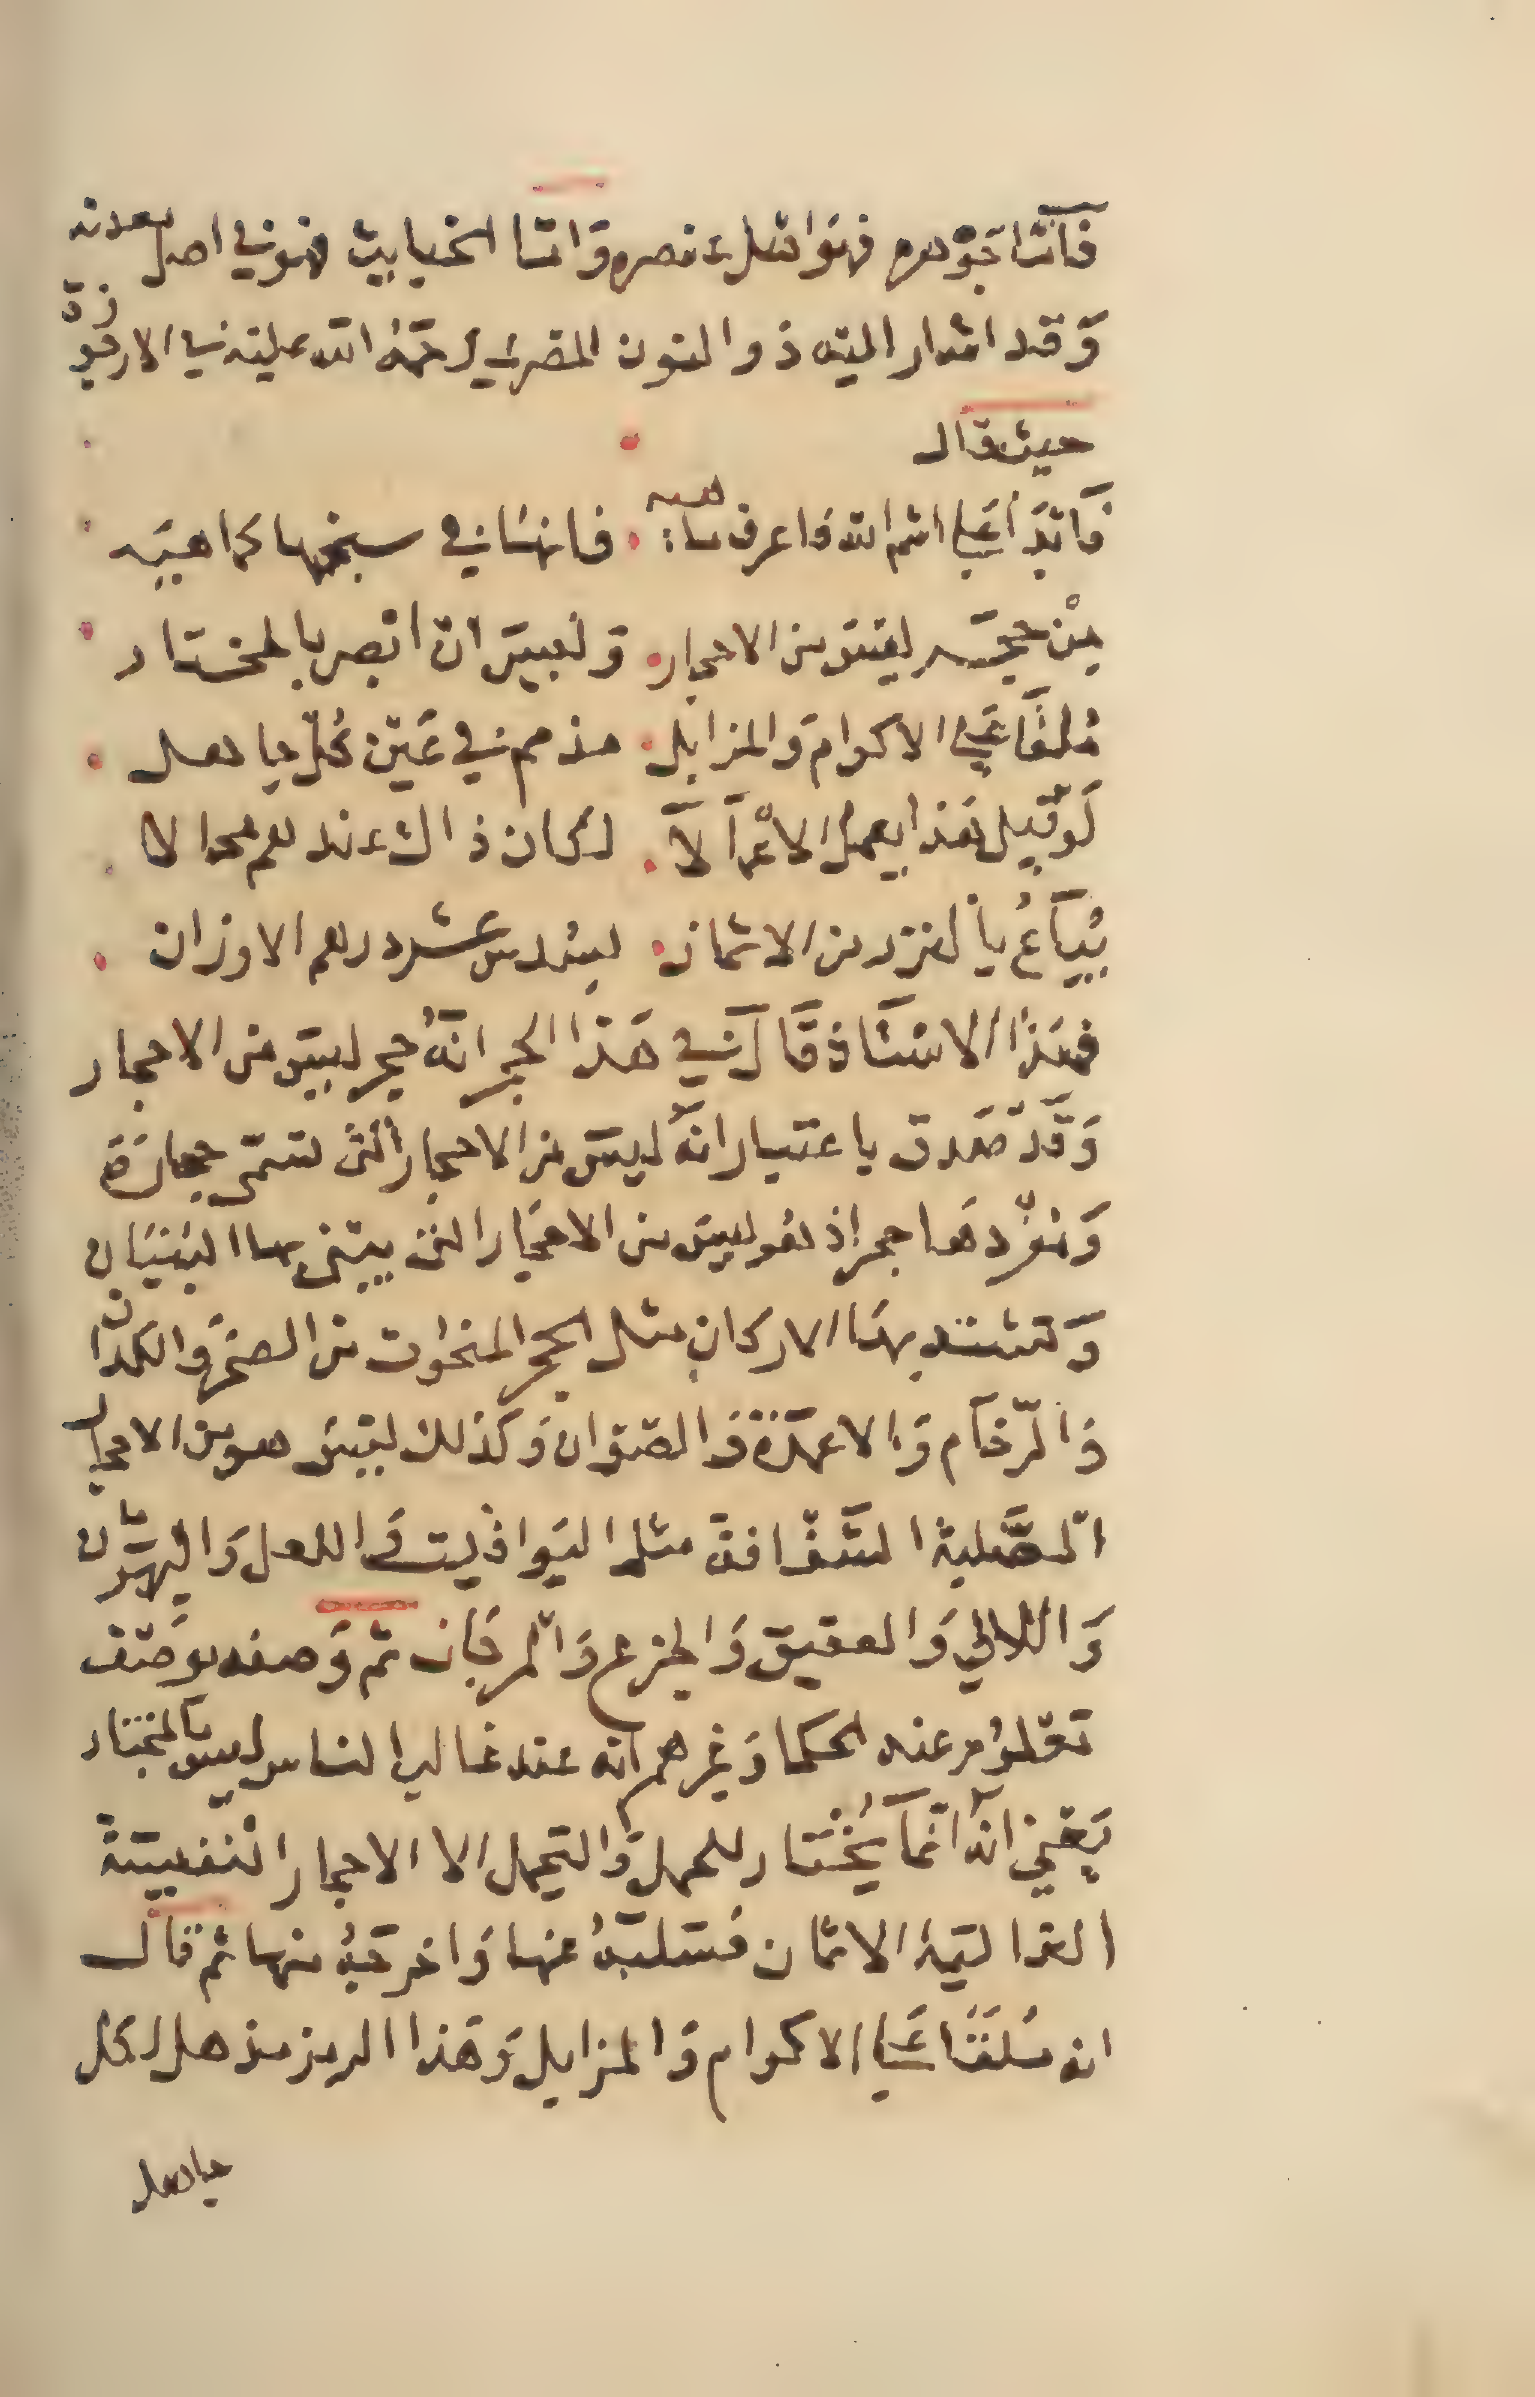 فاما جوهره فهو اشل عنصره واما الخبايث فهو في اصل معدنه
وقد اشار اليه ذو النون المصري رحمة الله عليه في الارجوزة
حيث قال
فابدا على اسم الله فاعرف ماهيه فانها في سبخها كماهيه
من حجر ليس من الاحجار وليس ان ابصر بالمختار
ملقا على الاكوام والمزابل مذمم في عين كل جاهل
لو قيل هذا يعمل الاعمالا لكان ذاك عندهم محالا
يباع بالنزر من الاثمان بسدس عشر درهم الاوزان
فهذا الاستاذ قال في هذا الحجر انه حجر ليس من الاحجار
وقد صدق باعتبار انه ليس من الاحجار التي تسمى حجارة
ومفردها حجر اذ هو ليس من الاحجار التي يبتنى بها البنيان
وتشتد بها الاركان مثل الحجر المنحوت من الصخر والكدان
والرخام والاعمدة والصوان وكذلك ليس هو من الاحجار
الصلبة الشفافة مثل اليواقيت واللعل والبهرمان
واللالي والعقيق والجزع والمرجان ثم وصفه بوصف
معلوم عنه الحكما وغيرهم انه عند غالب الناس ليس بالمختار
يعني انه انما يختار للحمل والتجمل الا الاحجار النفيسة
الغالية الاثمان فسلبه عنها واخرجه منها ثم قال
انه ملقا على الاكوام والمزابل وهذا الرمز مذهل لكل
جاهل